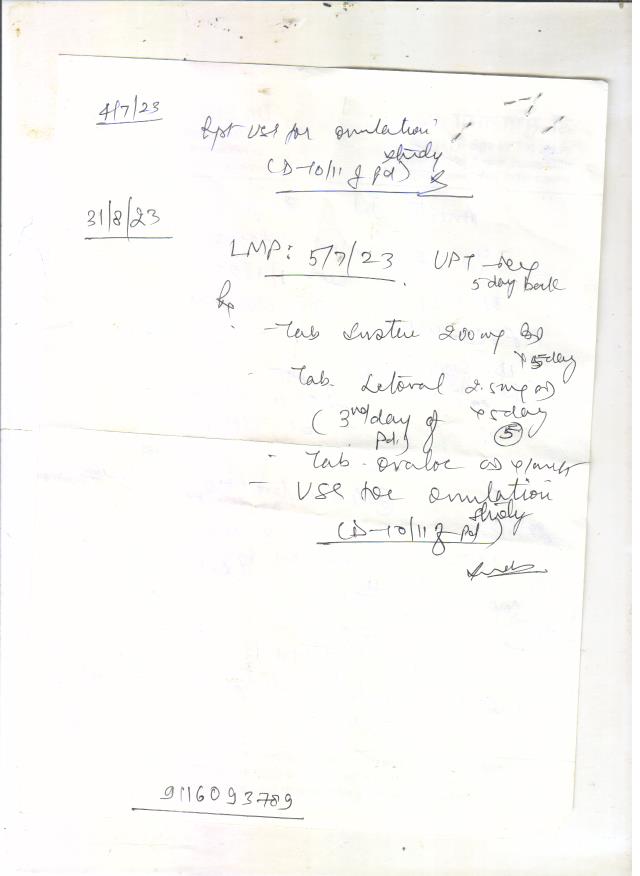 4/7/23
Rpt USG for ovulation
study
(D-10/11 of pd)
31/8/23
LMP: 5/7/23 UPT -ve
5 day back
Rx
- Tab 200 mg
x 5 day
- Tab. Letoval 2.5mg OD
(3rd day of x 5 day
pd.) 5
- Tab. OD
- USG for ovulation
study
(D-10/11 of pd)
9116093789